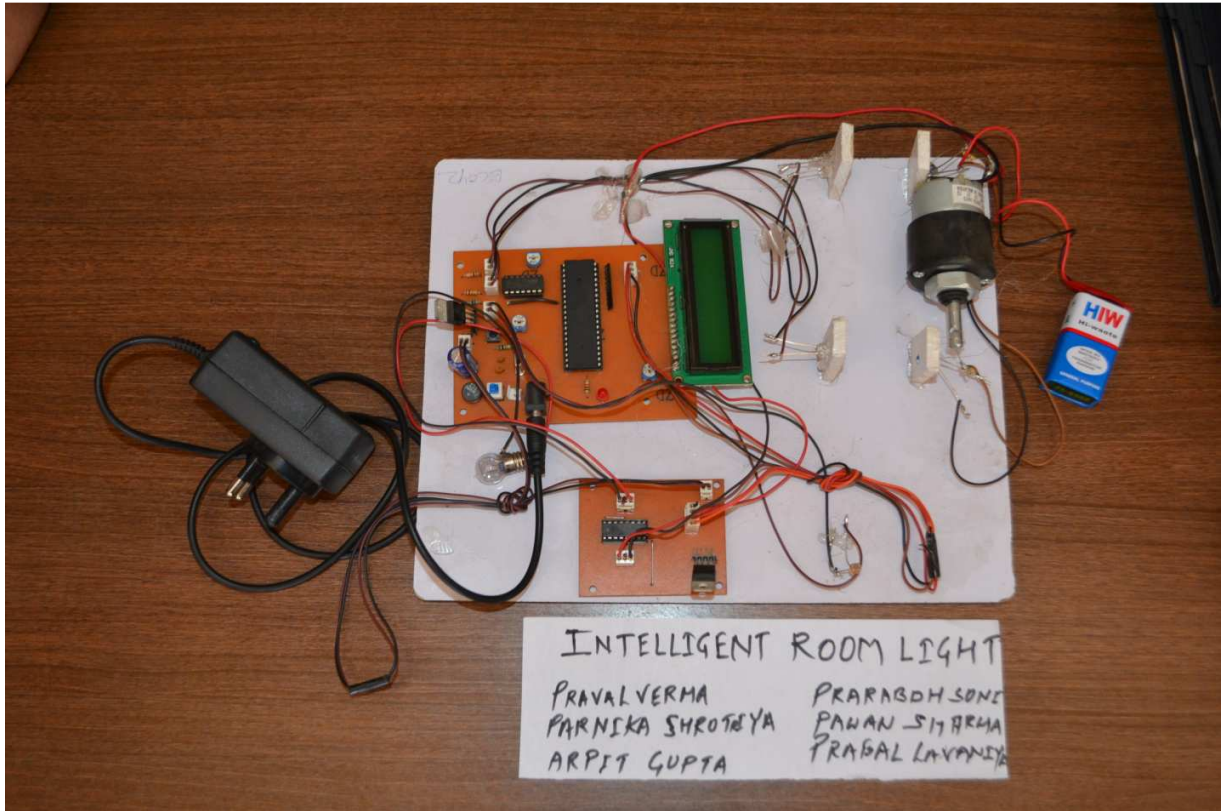 HIW
Hi-watt
INTELLIGENT ROOM LIGHT
PRAVAL VERMA
PARNIKA SHROTRIYA
ARPIT GUPTA
PRARABDH SONI
PAWAN SHARMA
PRAGAL LAVANIYA